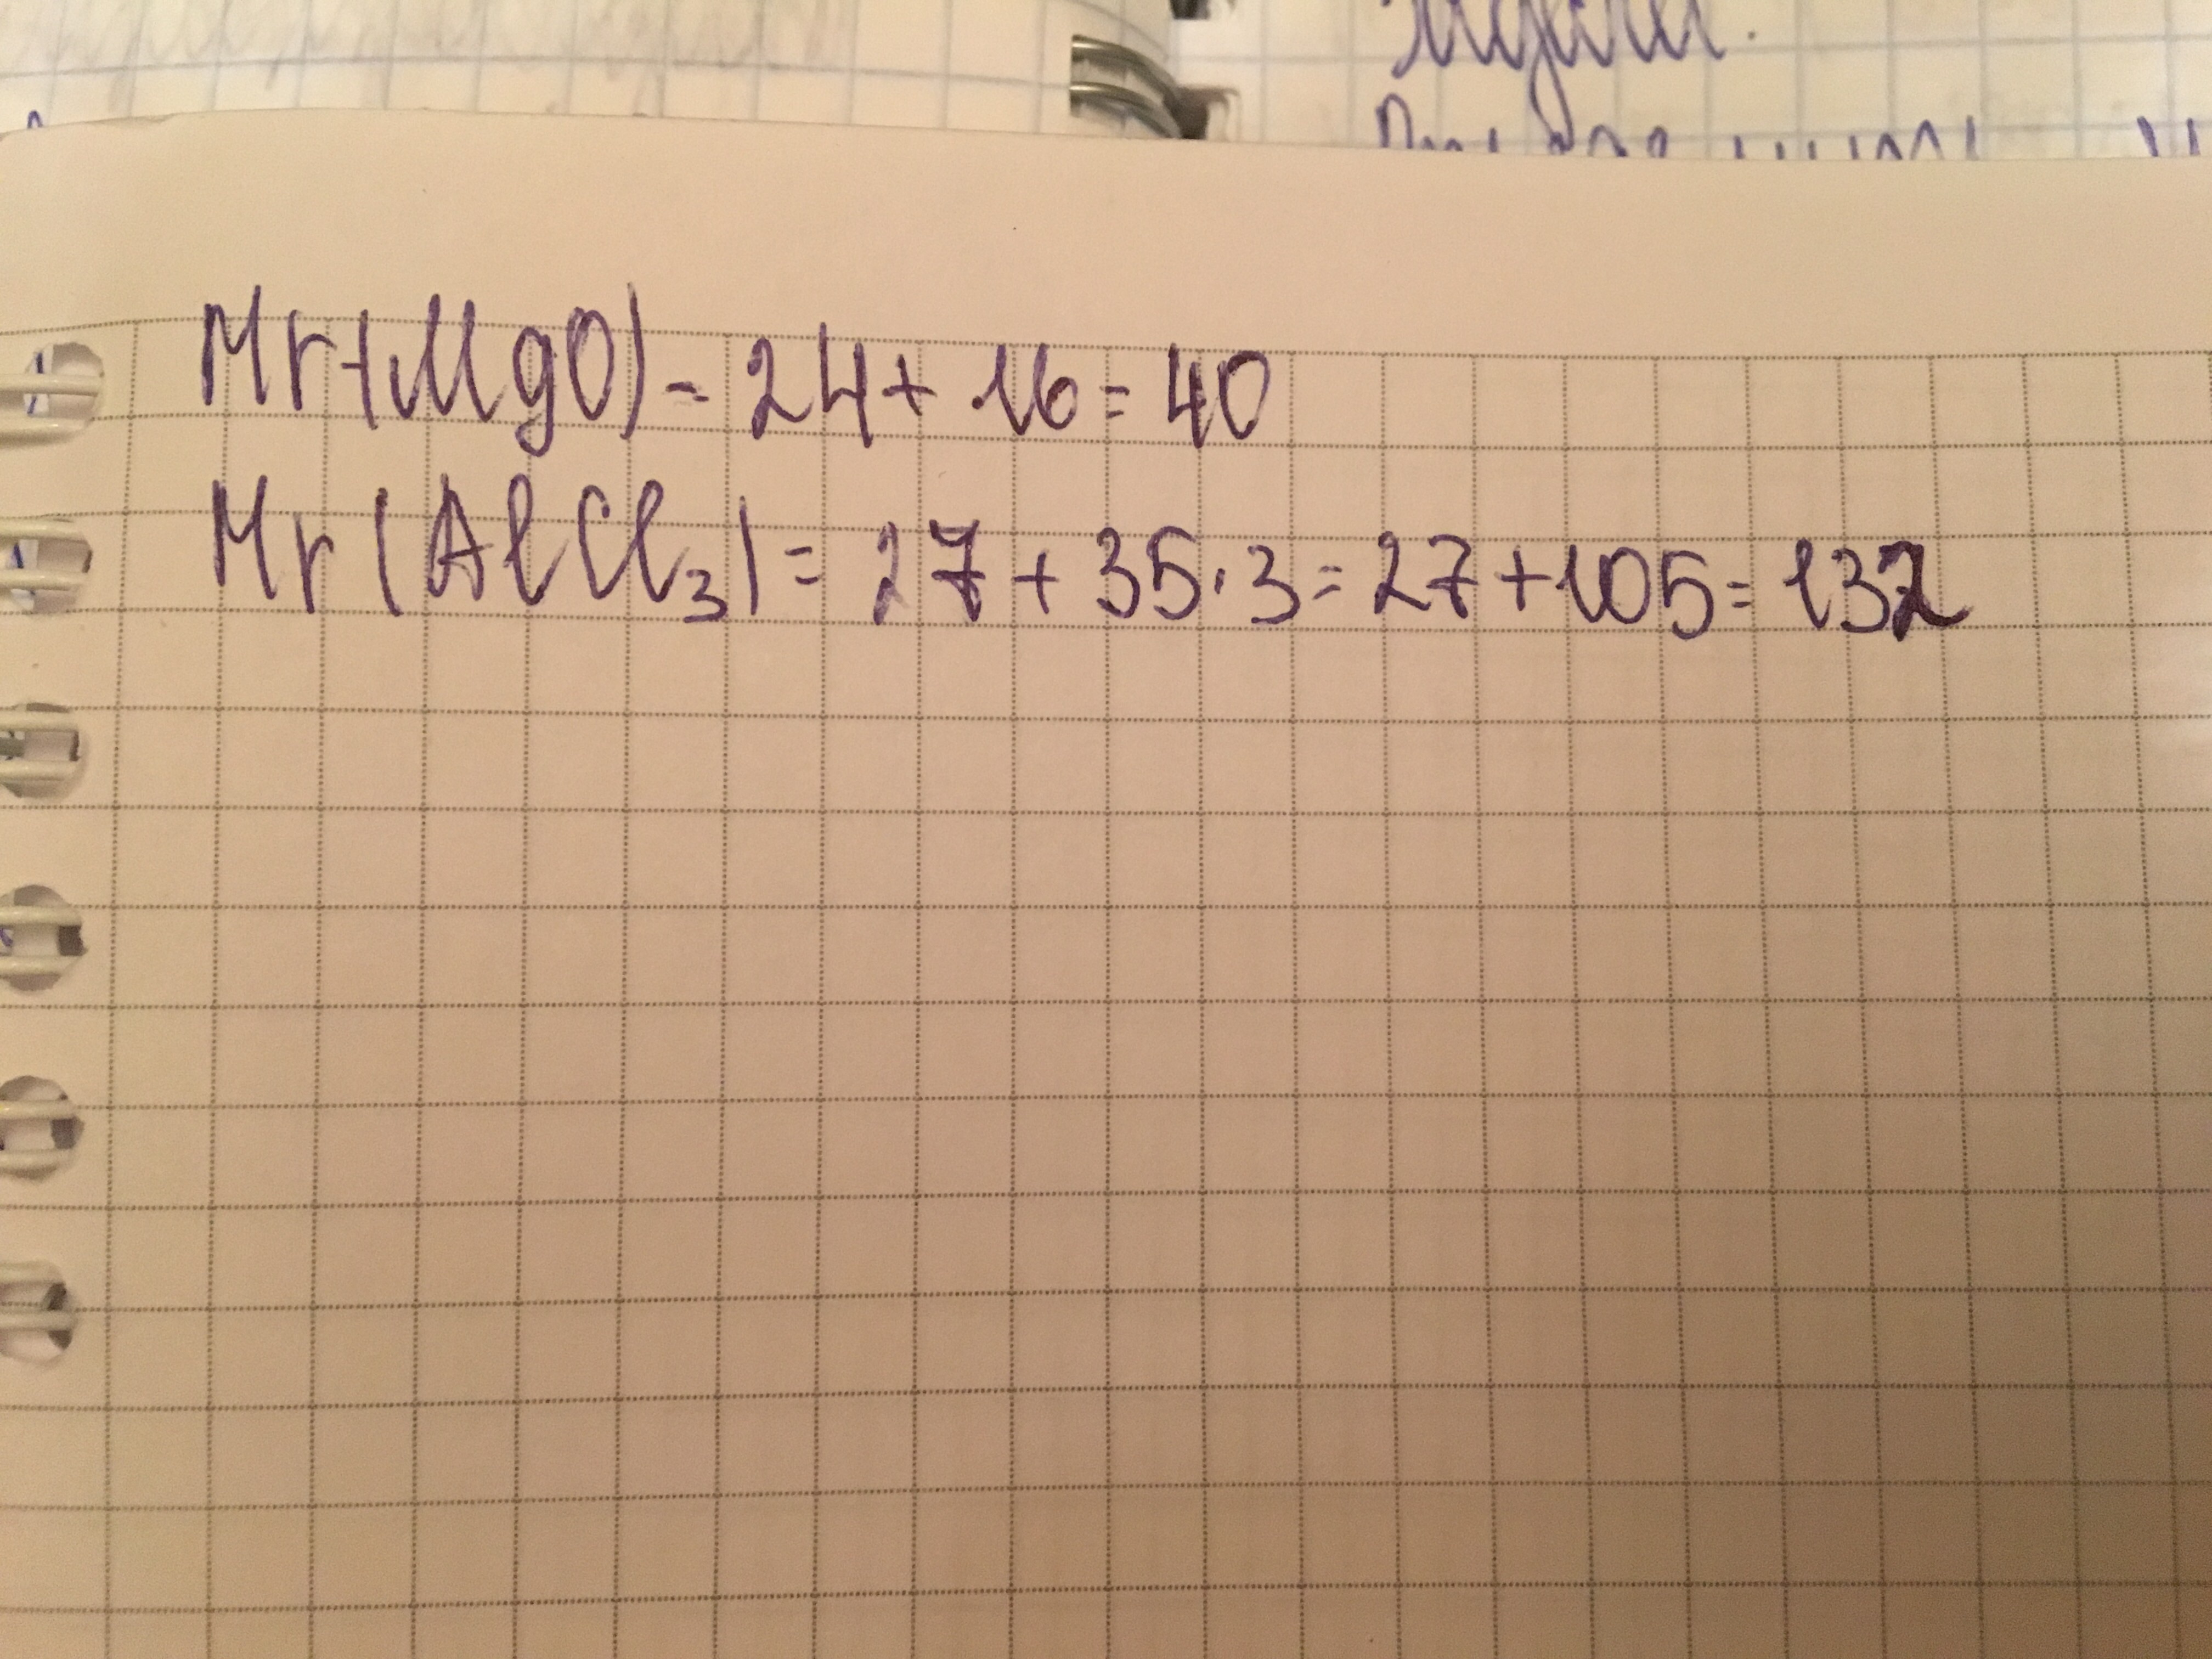 Mr(MgO)= 24+16=40
Mr(AlCl₃)= 27+35·3=27+105=132